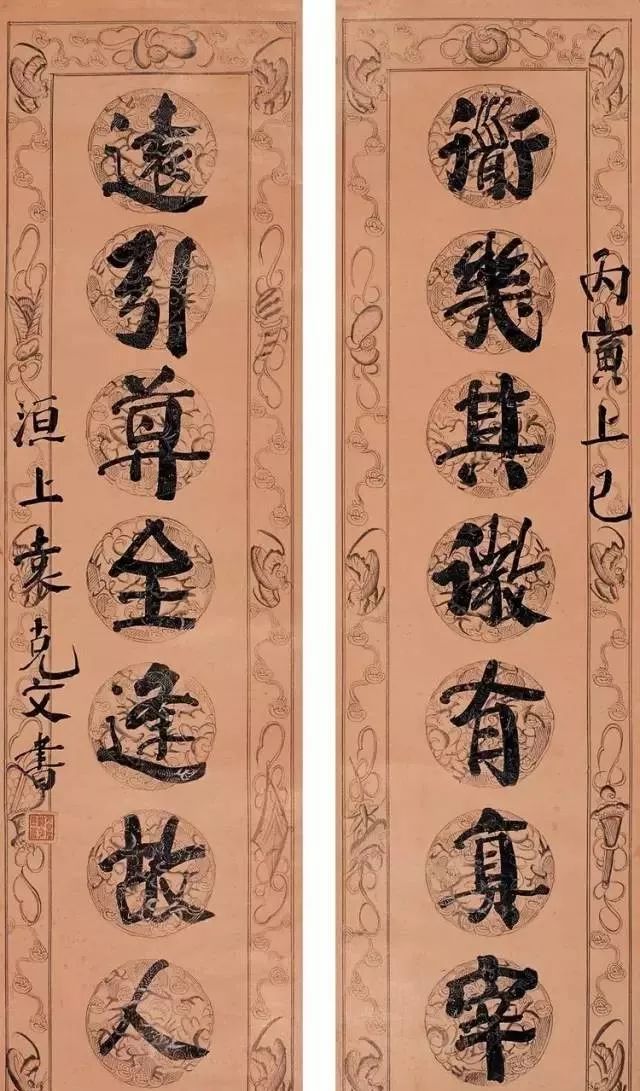 丙寅上巳
衟幾其微有真宰
遠引尊全逢故人
洹上袁克文書